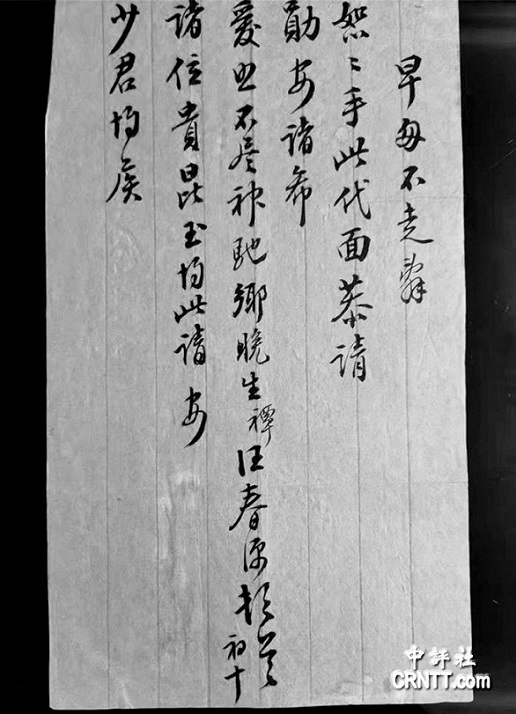 早每不克辭
恕〻手此代面恭請
勛安諸希
愛照不盡神馳鄉晚生禫汪春源頓首
初十
諸位貴昆玉均此請安
少君均候
中評社
CRNTT.com